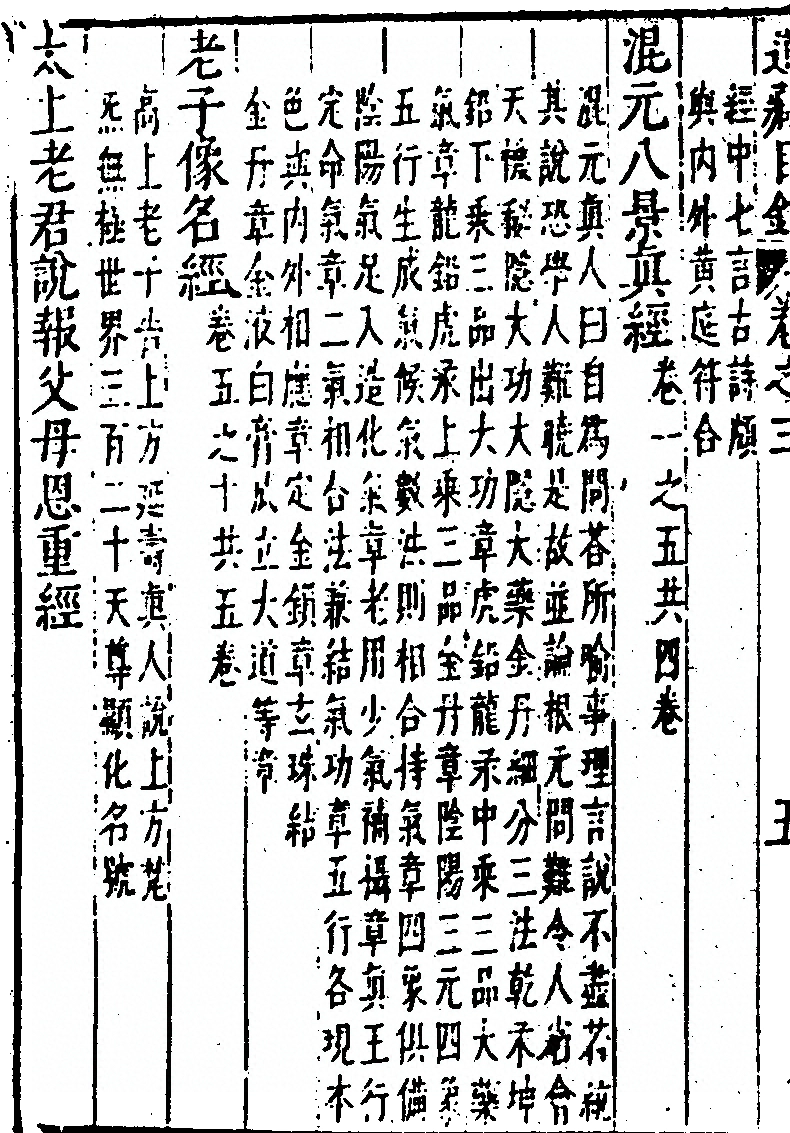 道藏目錄卷之三
五
經中七言古詩頗
與內外黄庭符合
混元八景真經 卷一之五共四卷
混元真人曰自為問荅所喻事理言說不盡若統
其說恐學人難曉是故並論根元問難令人省會
天機秘隱大功大隱大藥金丹細分三法乾汞坤
鉛下乘三品出大功章虎鉛龍汞中乘三品大藥
氣章龍鉛虎汞上乘三品金丹章陰陽三元四象
五行生成氣候氣數法則相合持氣章四象俱備
陰陽氣足入造化氣章老用少氣補攝章真王行
完命氣章二氣相合法兼結氣功章五行各現本
色與内外相應章定金鎖章立珠結
金丹章金液白膏成立大道等章
老子像名經 卷五之十共五卷
高上老子告上方延壽真人說上方梵
炁無極世界三百二十天尊顯化名號
太上老君說報父母恩重經